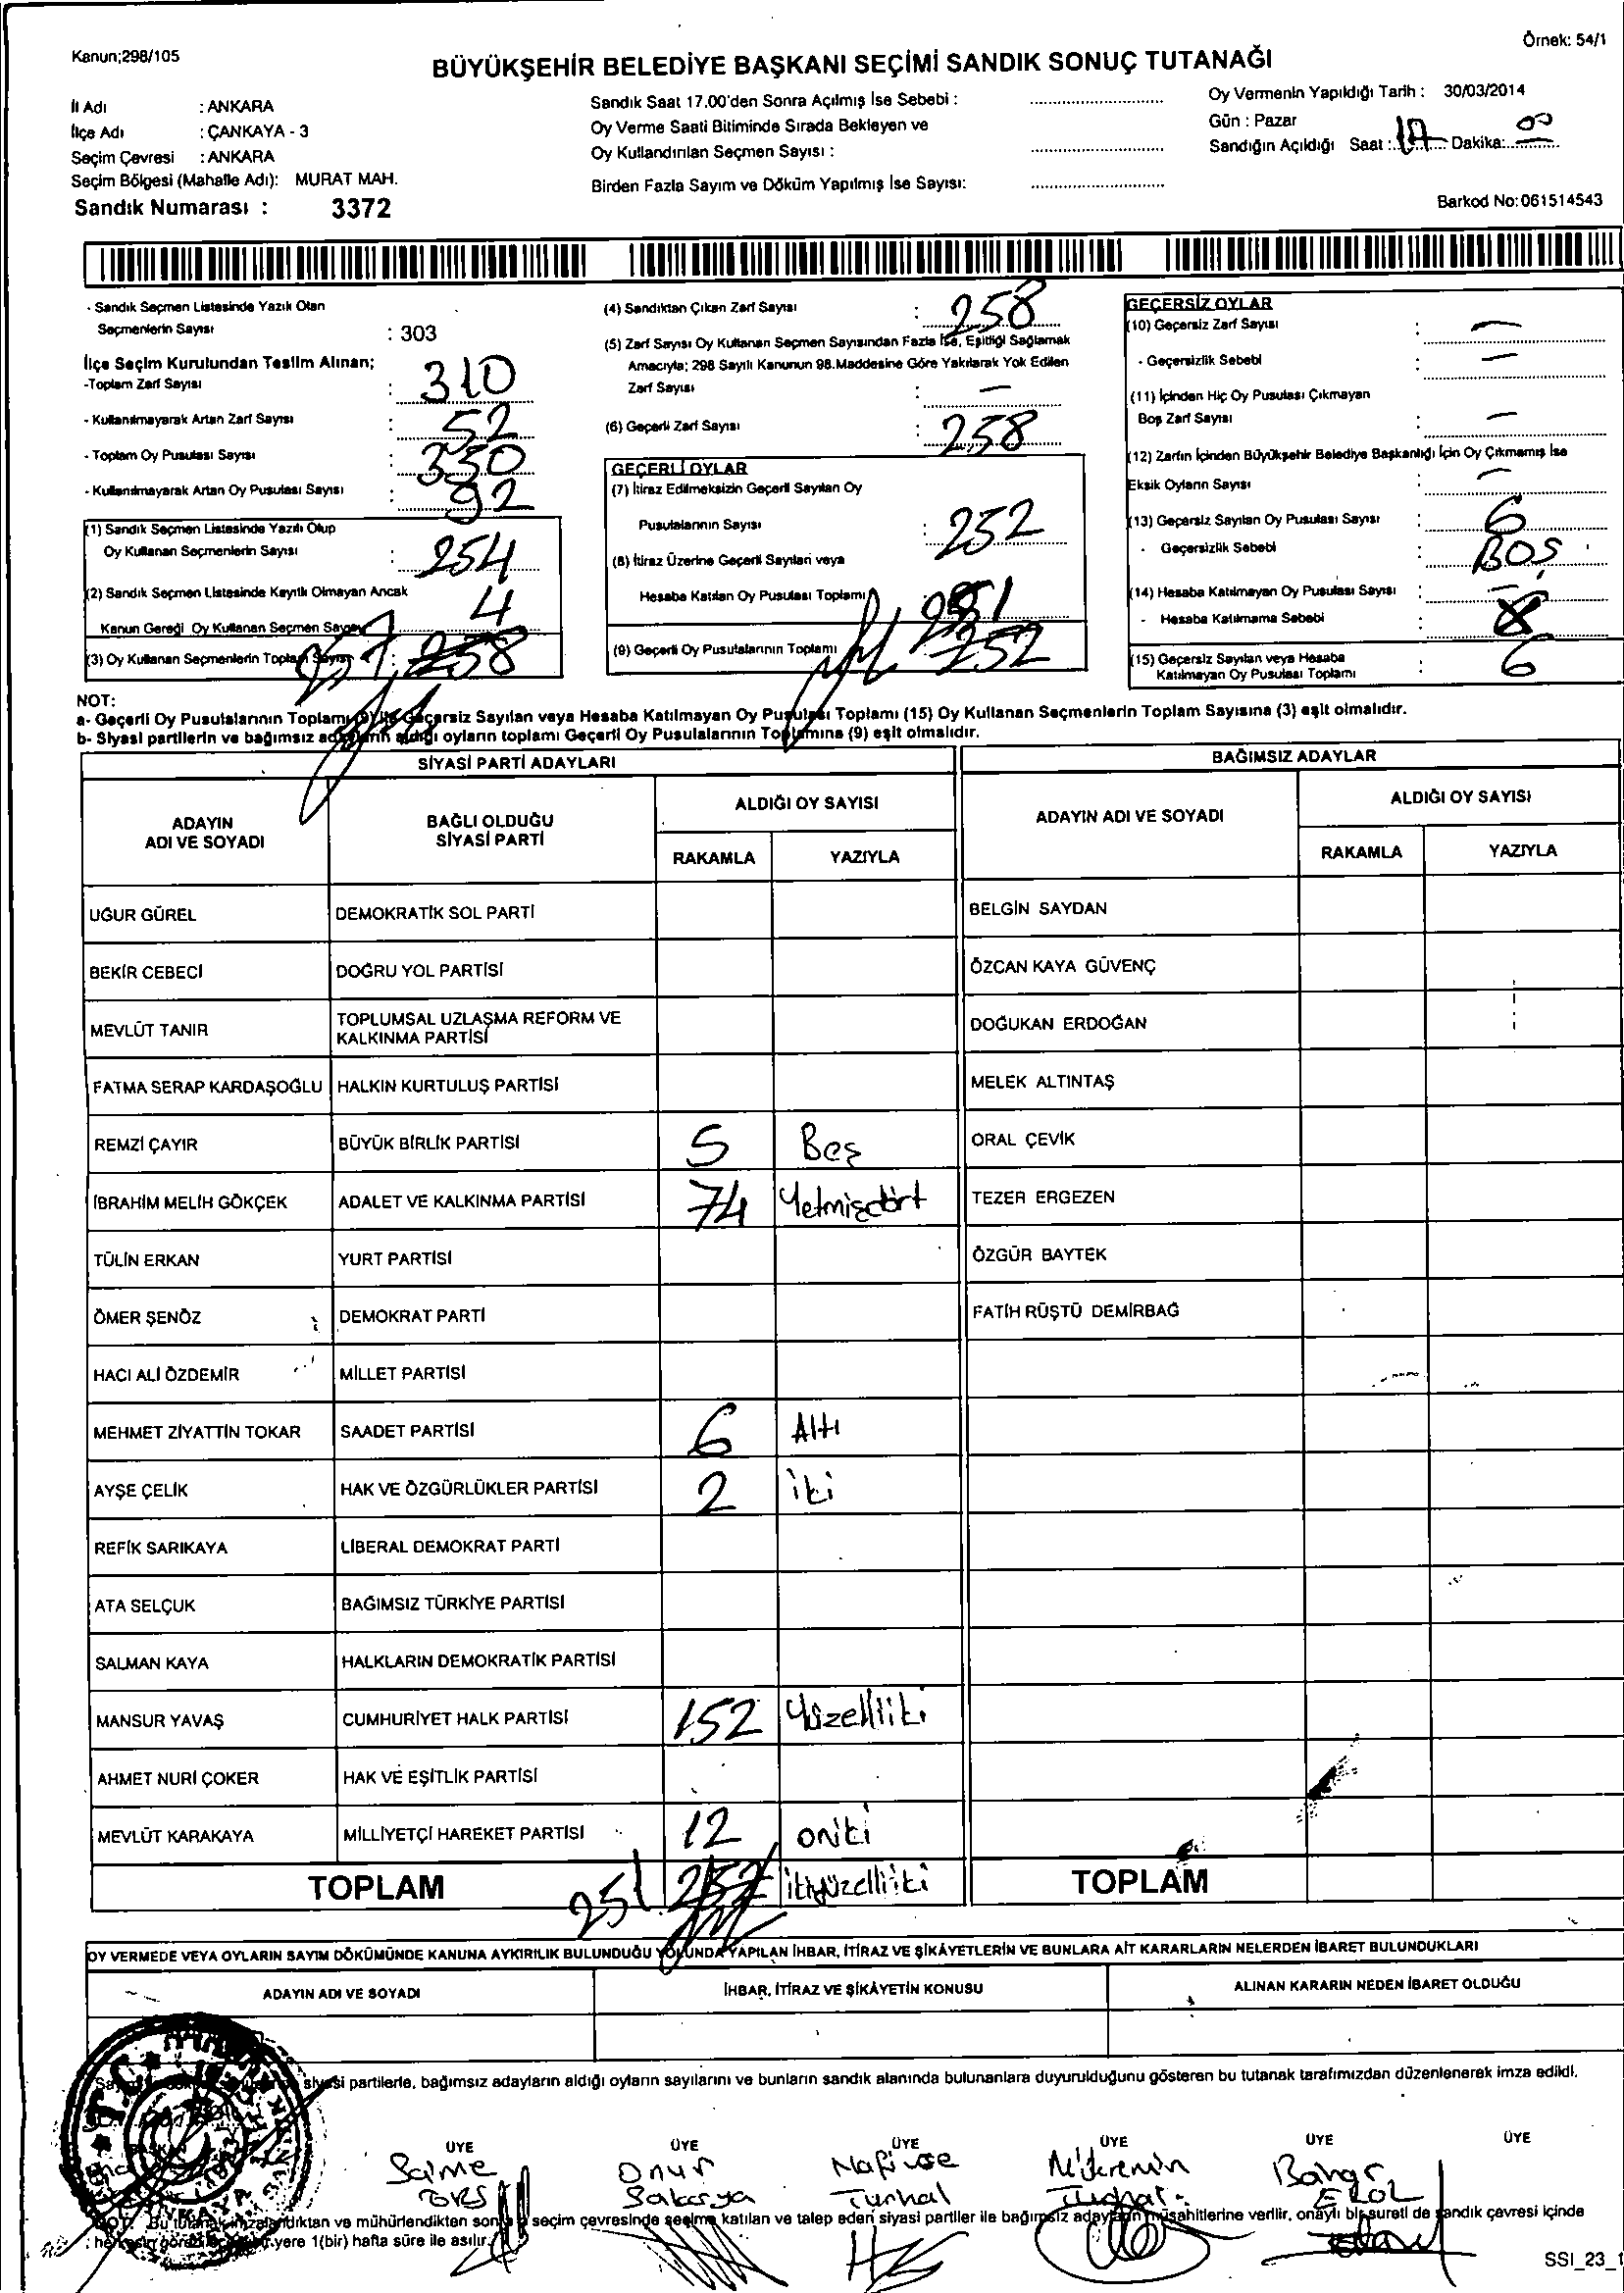 Kanun;298/105
Örnek: 54/1
BÜYÜKŞEHİR BELEDİYE BAŞKANI SEÇİMİ SANDIK SONUÇ TUTANAĞI
İl Adı : ANKARA
İlçe Adı : ÇANKAYA - 3
Seçim Çevresi : ANKARA
Seçim Bölgesi (Mahalle Adı): MURAT MAH.
Sandık Numarası : 3372
Sandık Saat 17.00'den Sonra Açılmış İse Sebebi :
Oy Verme Saati Bitiminde Sırada Bekleyen ve
Oy Kullandırılan Seçmen Sayısı :
Birden Fazla Sayım ve Döküm Yapılmış İse Sayısı:
Oy Vermenin Yapıldığı Tarih : 30/03/2014
Gün : Pazar
Sandığın Açıldığı Saat : 17 Dakika: 00
Barkod No:061514543
- Sandık Seçmen Listesinde Yazılı Olan
Seçmenlerin Sayısı : 303
İlçe Seçim Kurulundan Teslim Alınan;
-Toplam Zarf Sayısı : 310
- Kullanılmayarak Artan Zarf Sayısı : 52
- Toplam Oy Pusulası Sayısı : 350
- Kullanılmayarak Artan Oy Pusulası Sayısı : 92
(1) Sandık Seçmen Listesinde Yazılı Olup
Oy Kullanan Seçmenlerin Sayısı : 254
(2) Sandık Seçmen Listesinde Kayıtlı Olmayan Ancak
Kanun Gereği Oy Kullanan Seçmen Sayısı 4
(3) Oy Kullanan Seçmenlerin Toplam Sayısı : 257 258
(4) Sandıktan Çıkan Zarf Sayısı : 258
(5) Zarf Sayısı Oy Kullanan Seçmen Sayısından Fazla İse, Eşitliği Sağlamak
Amacıyla; 298 Sayılı Kanunun 98.Maddesine Göre Yakılarak Yok Edilen
Zarf Sayısı : —
(6) Geçerli Zarf Sayısı : 258
GEÇERLİ OYLAR
(7) İtiraz Edilmeksizin Geçerli Sayılan Oy
Pusulalarının Sayısı : 252
(8) İtiraz Üzerine Geçerli Sayılan veya
Hesaba Katılan Oy Pusulası Toplamı
251
(9) Geçerli Oy Pusulalarının Toplamı 252
GEÇERSİZ OYLAR
(10) Geçersiz Zarf Sayısı : —
- Geçersizlik Sebebi : —
(11) İçinden Hiç Oy Pusulası Çıkmayan
Boş Zarf Sayısı : —
(12) Zarfın İçinden Büyükşehir Belediye Başkanlığı İçin Oy Çıkmamış İse
Eksik Oyların Sayısı : —
(13) Geçersiz Sayılan Oy Pusulası Sayısı : 6
- Geçersizlik Sebebi : BOŞ
(14) Hesaba Katılmayan Oy Pusulası Sayısı : —
- Hesaba Katılmama Sebebi :
(15) Geçersiz Sayılan veya Hesaba
Katılmayan Oy Pusulası Toplamı : 6
NOT:
a- Geçerli Oy Pusulalarının Toplamı (9) ile Geçersiz Sayılan veya Hesaba Katılmayan Oy Pusulası Toplamı (15) Oy Kullanan Seçmenlerin Toplam Sayısına (3) eşit olmalıdır.
b- Siyasi partilerin ve bağımsız adayların aldığı oyların toplamı Geçerli Oy Pusulalarının Toplamına (9) eşit olmalıdır.
SİYASİ PARTİ ADAYLARI
BAĞIMSIZ ADAYLAR
ADAYIN ADI VE SOYADI
BAĞLI OLDUĞU SİYASİ PARTİ
ALDIĞI OY SAYISI
RAKAMLA YAZIYLA
ADAYIN ADI VE SOYADI
ALDIĞI OY SAYISI
RAKAMLA YAZIYLA
UĞUR GÜREL DEMOKRATİK SOL PARTİ BELGİN SAYDAN
BEKİR CEBECİ DOĞRU YOL PARTİSİ ÖZCAN KAYA GÜVENÇ
MEVLÜT TANIR TOPLUMSAL UZLAŞMA REFORM VE KALKINMA PARTİSİ DOĞUKAN ERDOĞAN
FATMA SERAP KARDAŞOĞLU HALKIN KURTULUŞ PARTİSİ MELEK ALTINTAŞ
REMZİ ÇAYIR BÜYÜK BİRLİK PARTİSİ 5 Beş ORAL ÇEVİK
İBRAHİM MELİH GÖKÇEK ADALET VE KALKINMA PARTİSİ 74 Yetmişdört TEZER ERGEZEN
TÜLİN ERKAN YURT PARTİSİ ÖZGÜR BAYTEK
ÖMER ŞENÖZ DEMOKRAT PARTİ FATİH RÜŞTÜ DEMİRBAĞ
HACI ALİ ÖZDEMİR MİLLET PARTİSİ
MEHMET ZİYATTİN TOKAR SAADET PARTİSİ 6 Altı
AYŞE ÇELİK HAK VE ÖZGÜRLÜKLER PARTİSİ 2 iki
REFİK SARIKAYA LİBERAL DEMOKRAT PARTİ
ATA SELÇUK BAĞIMSIZ TÜRKİYE PARTİSİ
SALMAN KAYA HALKLARIN DEMOKRATİK PARTİSİ
MANSUR YAVAŞ CUMHURİYET HALK PARTİSİ 152 Yüzelliiki
AHMET NURİ ÇOKER HAK VE EŞİTLİK PARTİSİ
MEVLÜT KARAKAYA MİLLİYETÇİ HAREKET PARTİSİ 12 oniki
TOPLAM 251 252 ikiyüzelliiki TOPLAM
OY VERMEDE VEYA OYLARIN SAYIM DÖKÜMÜNDE KANUNA AYKIRILIK BULUNDUĞU YOLUNDA YAPILAN İHBAR, İTİRAZ VE ŞİKÂYETLERİN VE BUNLARA AİT KARARLARIN NELERDEN İBARET BULUNDUKLARI
ADAYIN ADI VE SOYADI İHBAR, İTİRAZ VE ŞİKÂYETİN KONUSU ALINAN KARARIN NEDEN İBARET OLDUĞU
siyasi partilerle, bağımsız adayların aldığı oyların sayılarını ve bunların sandık alanında bulunanlara duyurulduğunu gösteren bu tutanak tarafımızdan düzenlenerek imza edildi.
T.C.
BAŞKAN ÜYE ÜYE ÜYE ÜYE ÜYE ÜYE
Saime Onur Nafise Mükremin
Sakarya Turhal Turhal EROL
Bu tutanak imzalandıktan ve mühürlendikten sonra seçim çevresinde seçime katılan ve talep eden siyasi partiler ile bağımsız adayların müşahitlerine verilir, onaylı bir sureti de sandık çevresi içinde
yere 1(bir) hafta süre ile asılır.
SSI_23_1